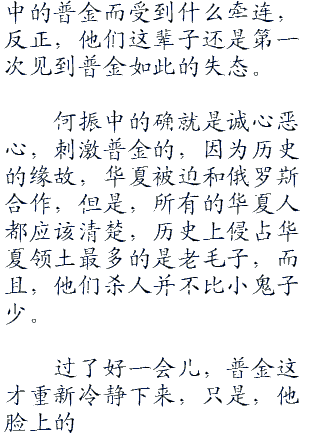 中的普金而受到什么牵连，
反正，他们这辈子还是第一
次见到普金如此的失态。
何振中的确就是诚心恶
心，刺激普金的，因为历史
的缘故，华夏被迫和俄罗斯
合作，但是，所有的华夏人
都应该清楚，历史上侵占华
夏领土最多的是老毛子，而
且，他们杀人并不比小鬼子
少。
过了好一会儿，普金这
才重新冷静下来，只是，他
脸上的